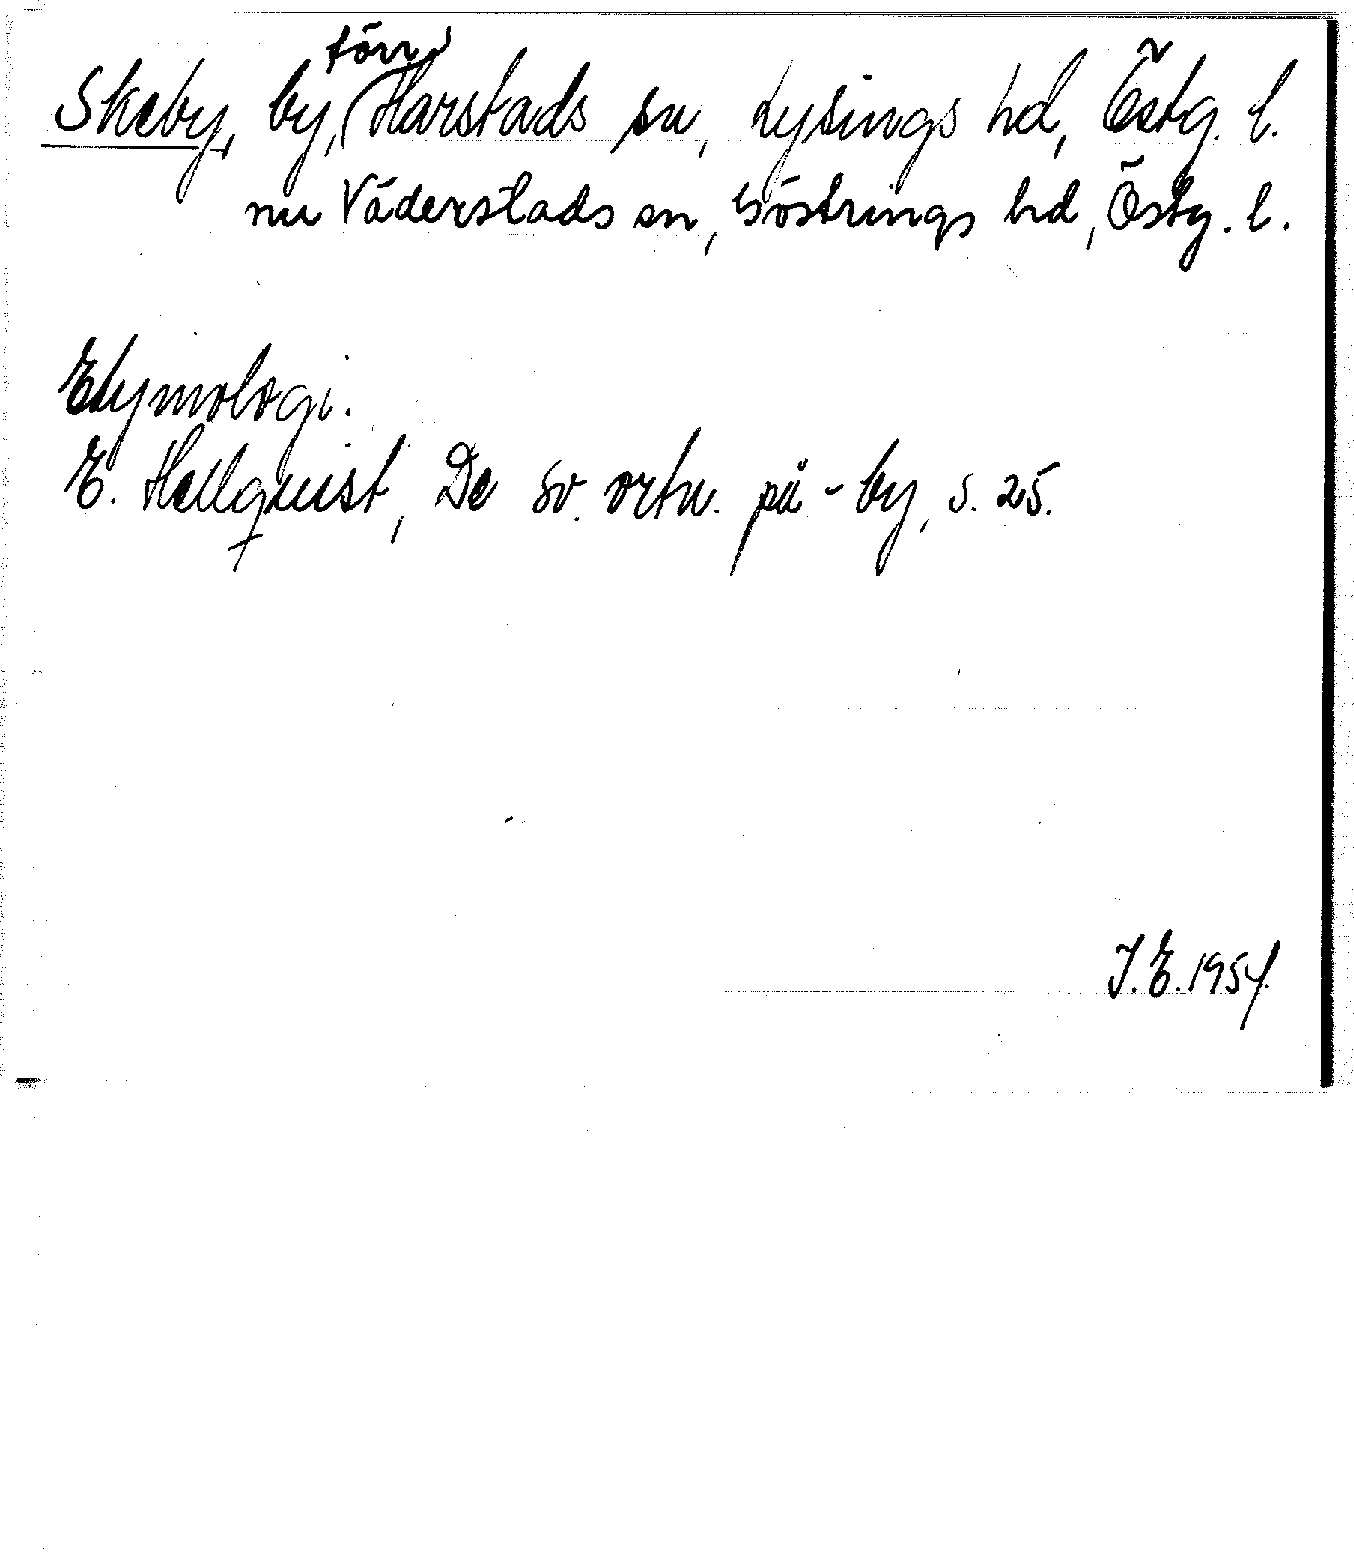 Skeby, by, förr Harstads sn, Lysings hd, Östg. l.
nu Väderstads sn, Göstrings hd, Östg. l.
Etymologi.
E. Hellquist, De sv. ortn. på -by, s. 25.
I.E. 1954.